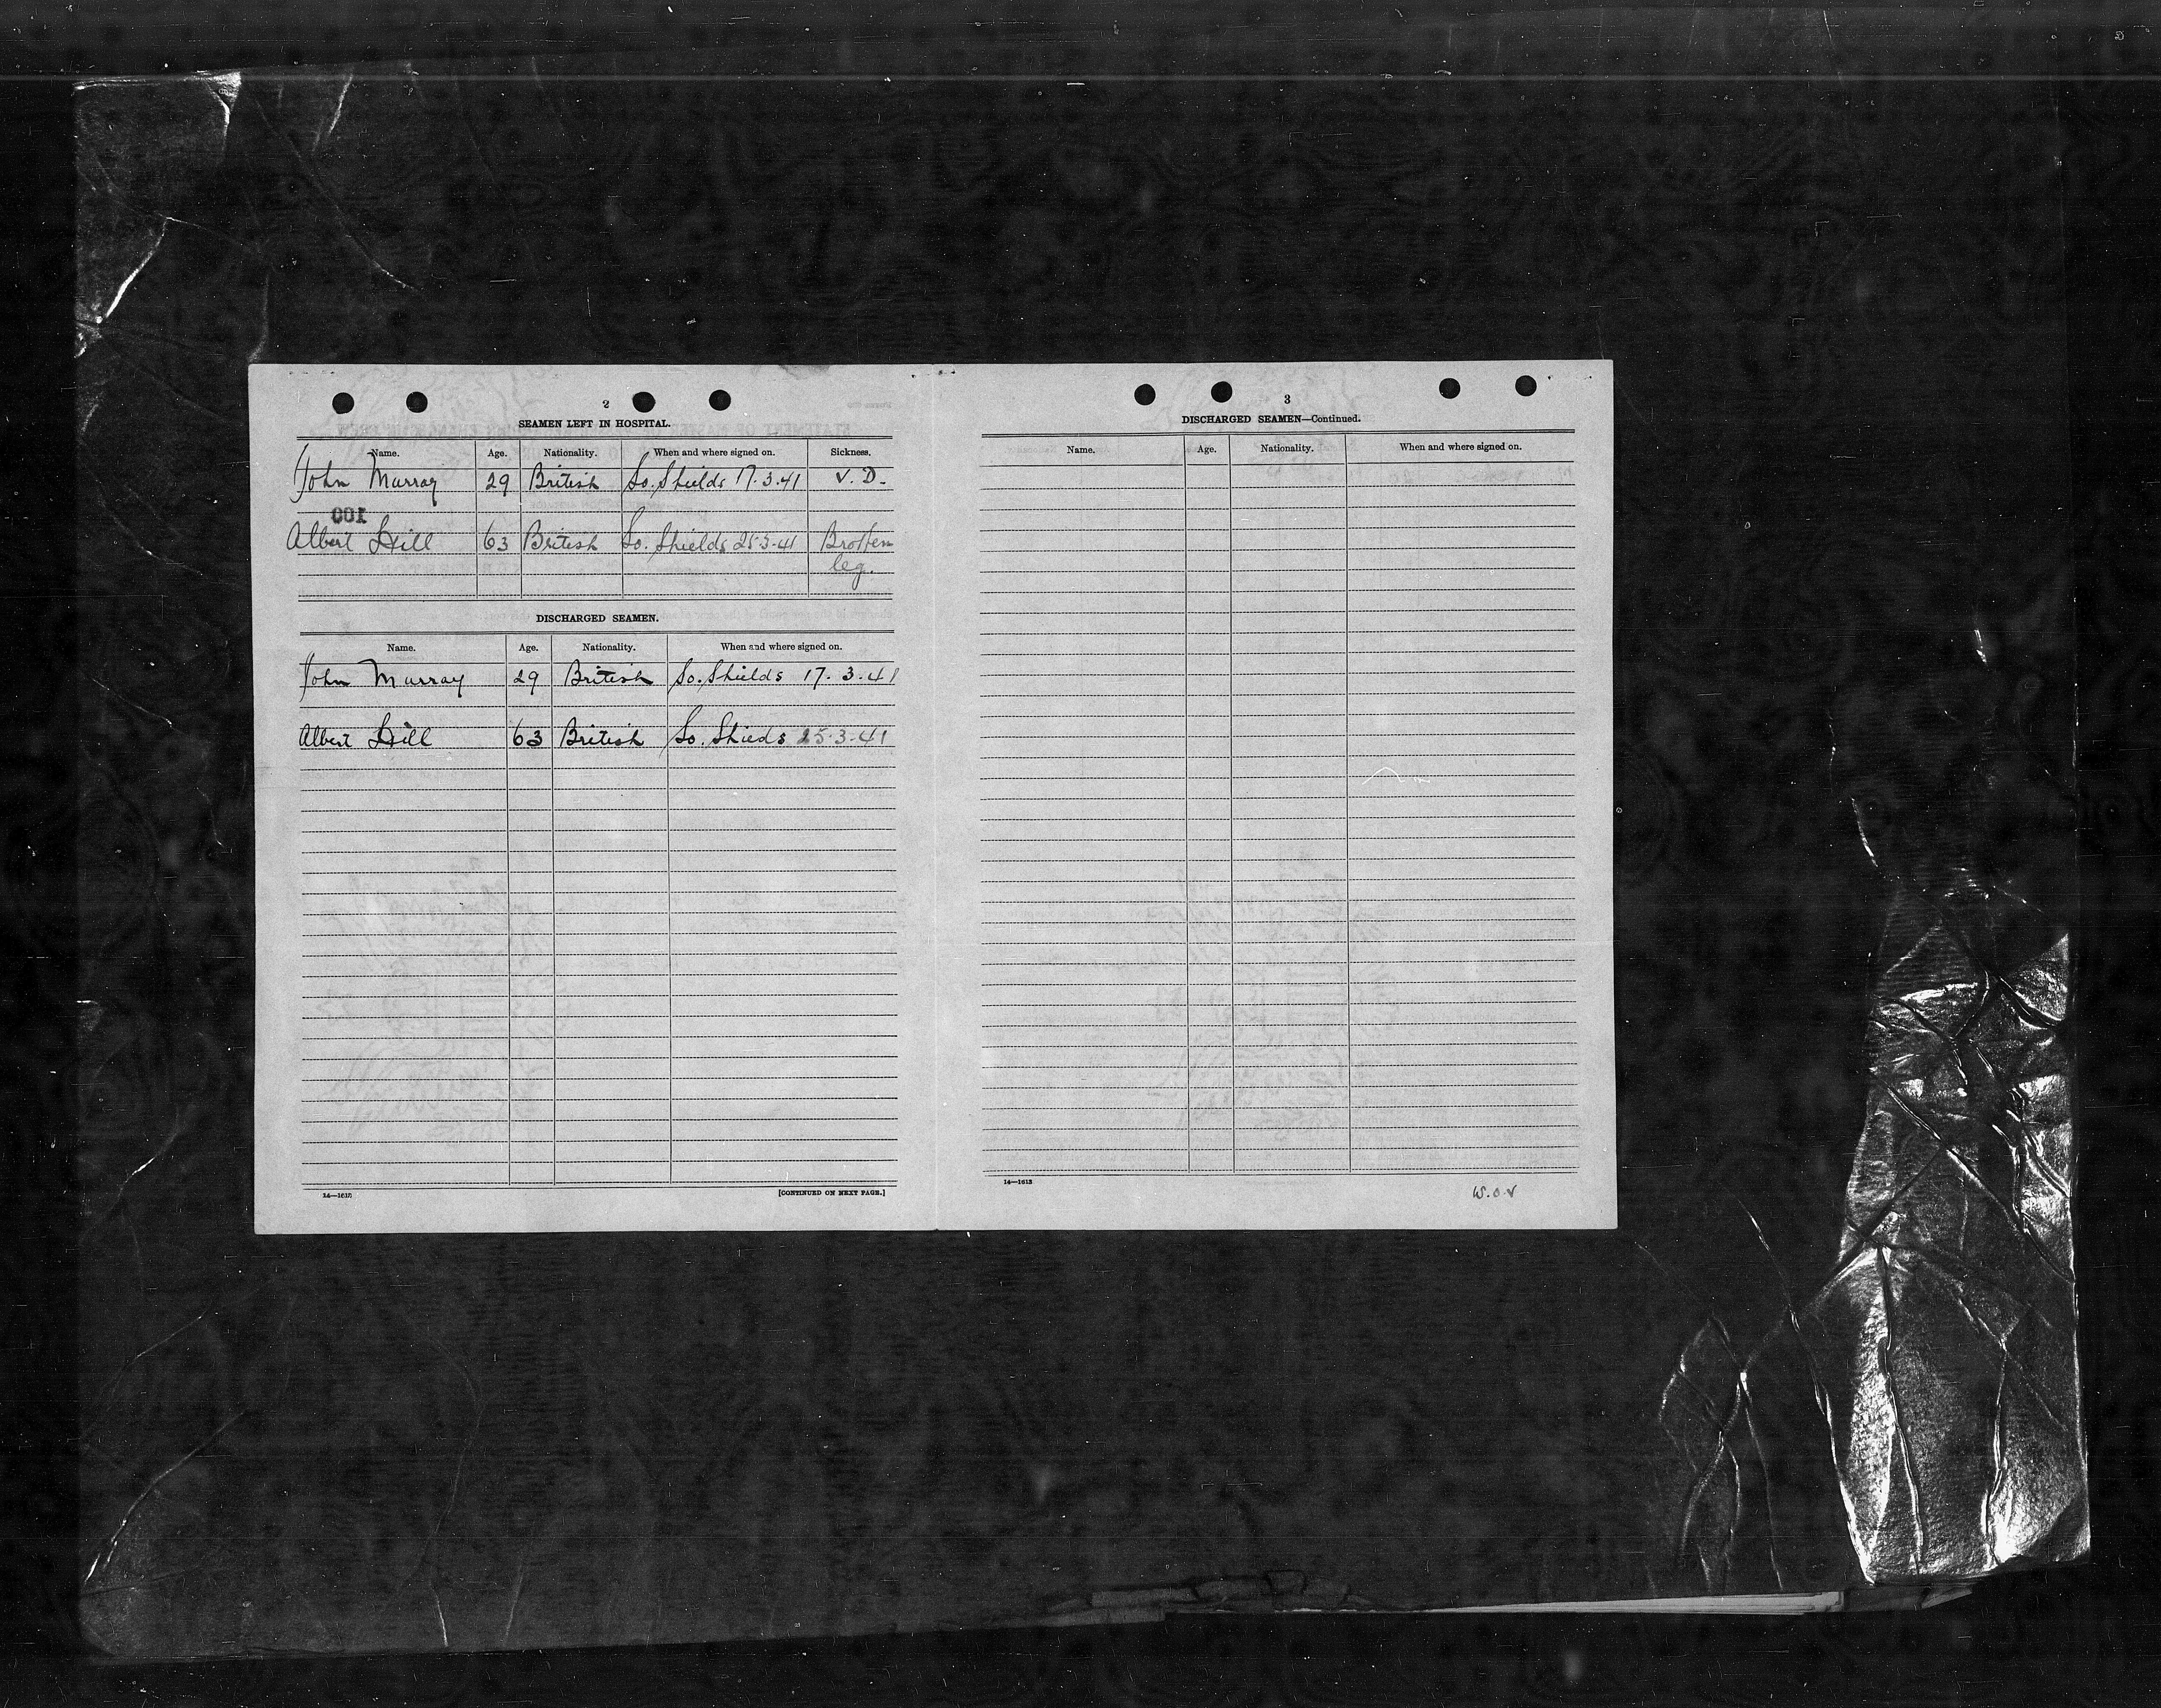 2
SEAMEN LEFT IN HOSPITAL.
Name. Age. Nationality. When and where signed on. Sickness.
John Murray 29 British So. Shields 17.3.41 V.D.
001
Albert Hill 63 British So. Shields 25-3-41 Broken
leg.
DISCHARGED SEAMEN.
Name. Age. Nationality. When and where signed on.
John Murray 29 British So. Shields 17.3.41
Albert Hill 63 British So. Shieds 25-3-41
14—1613 [CONTINUED ON NEXT PAGE.]
3
DISCHARGED SEAMEN—Continued.
Name. Age. Nationality. When and where signed on.
14—1613